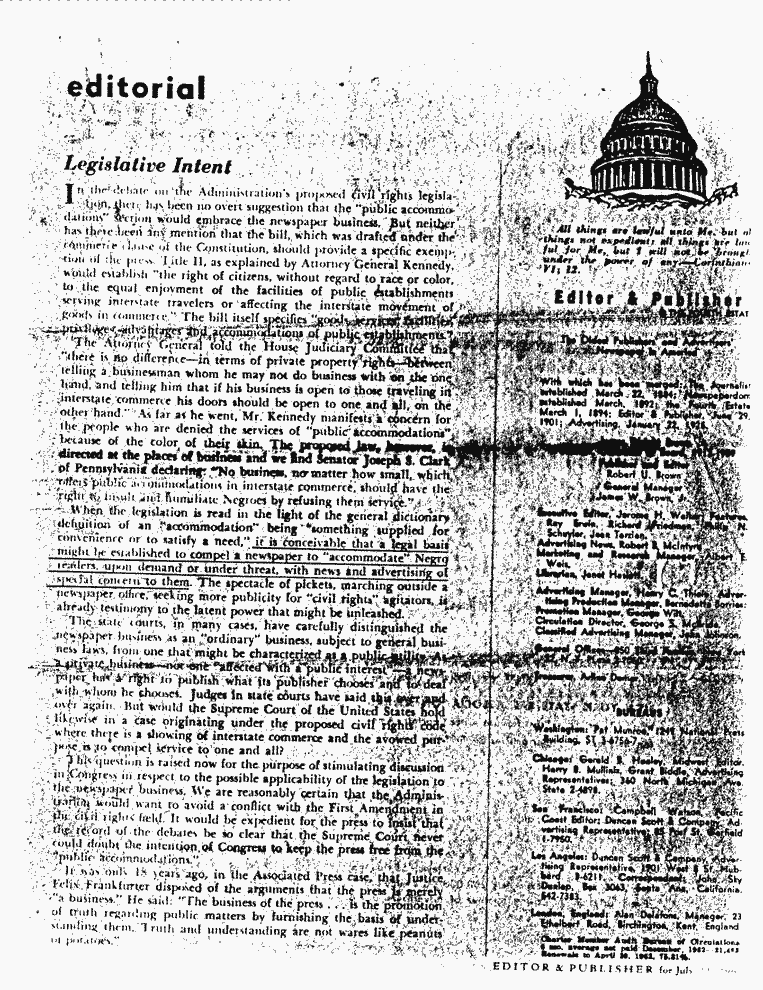 editorial
Legislative Intent
In the debate on the Administration's proposed civil rights legisla-
tion, there has been no overt suggestion that the "public accommo-
dations" section would embrace the newspaper business. But neither
has there been any mention that the bill, which was drafted under the
commerce clause of the Constitution, should provide a specific exemp-
tion of the press. Title II, as explained by Attorney General Kennedy,
would establish "the right of citizens, without regard to race or color,
to the equal enjoyment of the facilities of public establishments
serving interstate travelers or affecting the interstate movement of
goods in commerce." The bill itself specifies "goods, services, facilities,
privileges, advantages and accommodations of public establishments."
The Attorney General told the House Judiciary Committee that
"there is no difference—in terms of private property rights—between
telling a businessman whom he may not do business with on the one
hand, and telling him that if his business is open to those traveling in
interstate commerce his doors should be open to one and all, on the
other hand." As far as he went, Mr. Kennedy manifests a concern for
the people who are denied the services of "public accommodations"
because of the color of their skin. The proposed law, however, is
directed at the places of business and we find Senator Joseph S. Clark
of Pennsylvania declaring: "No business, no matter how small, which
offers public accommodations in interstate commerce, should have the
right to insult and humiliate Negroes by refusing them service."
When the legislation is read in the light of the general dictionary
definition of an "accommodation" being "something supplied for
convenience or to satisfy a need," it is conceivable that a legal basis
might be established to compel a newspaper to "accommodate" Negro
readers, upon demand or under threat, with news and advertising of
special concern to them. The spectacle of pickets, marching outside a
newspaper office, seeking more publicity for "civil rights" agitators, is
already testimony to the latent power that might be unleashed.
The state courts, in many cases, have carefully distinguished the
newspaper business as an "ordinary" business, subject to general busi-
ness laws, from one that might be characterized as a public utility. As
a private business—not one "affected with a public interest"—a news-
paper has a right to publish what its publisher chooses and to deal
with whom he chooses. Judges in state courts have said this over and
over again. But would the Supreme Court of the United States hold
likewise in a case originating under the proposed civil rights code
where there is a showing of interstate commerce and the avowed pur-
pose is to compel service to one and all?
This question is raised now for the purpose of stimulating discussion
in Congress in respect to the possible applicability of the legislation to
the newspaper business. We are reasonably certain that the Adminis-
tration would want to avoid a conflict with the First Amendment in
the civil rights field. It would be expedient for the press to insist that
the record of the debates be so clear that the Supreme Court never
could doubt the intention of Congress to keep the press free from the
"public accommodations."
It was only 18 years ago, in the Associated Press case, that Justice
Felix Frankfurter disposed of the arguments that the press is merely
"a business." He said: "The business of the press . . . is the promotion
of truth regarding public matters by furnishing the basis of under-
standing them. Truth and understanding are not wares like peanuts
or potatoes."
All things are lawful unto Me, but all
things not expedient; all things are law
ful for Me, but I will not be brought
under the power of any.—Corinthians
VI; 12.
Editor & Publisher
The Oldest Publishers and Advertisers
Newspaper in America
With which has been merged: The Journalist
established March 22, 1884; Newspaperdom
established March, 1892; The Fourth Estate
March 1, 1894; Editor & Publisher, June 29,
1901; Advertising, January 22, 1925.
Robert U. Brown
General Manager
James W. Brown, Jr.
Executive Editor, Jerome H. Walker; Features
Ray Erwin, Richard Friedman, Philip N.
Advertising News, Robert B. McIntyre
Marketing and Research Manager, Albert E.
Weis.
Librarian, Janet
Advertising Manager, Henry C. Thiele; Adver-
tising Production Manager, Bernadette Borries;
Promotion Manager, George Wilt;
Circulation Director, George S.
Classified Advertising Manager, John Johnson.
BUREAUS
Washington: Pat Munroe, 1241 National Press
Building, ST 3-6756-7
Chicago: Gerald B. Healey, Midwest Editor,
Harry B. Mullinix, Grant Biddle, Advertising
Representatives; 360 North Michigan Ave.
State 2-4898.
San Francisco: Campbell Watson, Pacific
Coast Editor; Duncan Scott & Company, Ad-
vertising Representative; 85 Post St. Garfield
1-7950.
Los Angeles: Duncan Scott & Company, Adver-
tising Representative, 1901 West 8 St. Hub-
bard 3-6211. Correspondent: John Sky
Dunlap, Box 3063, Santa Ana, California.
542-7383.
London, England: Alan Delafons, Manager, 23
Ethelbert Road, Birchington, Kent, England
Charter Member Audit Bureau of Circulations
6 mo. average net paid December, 1962
Renewals to April 30, 1963, 75.81%.
EDITOR & PUBLISHER for July